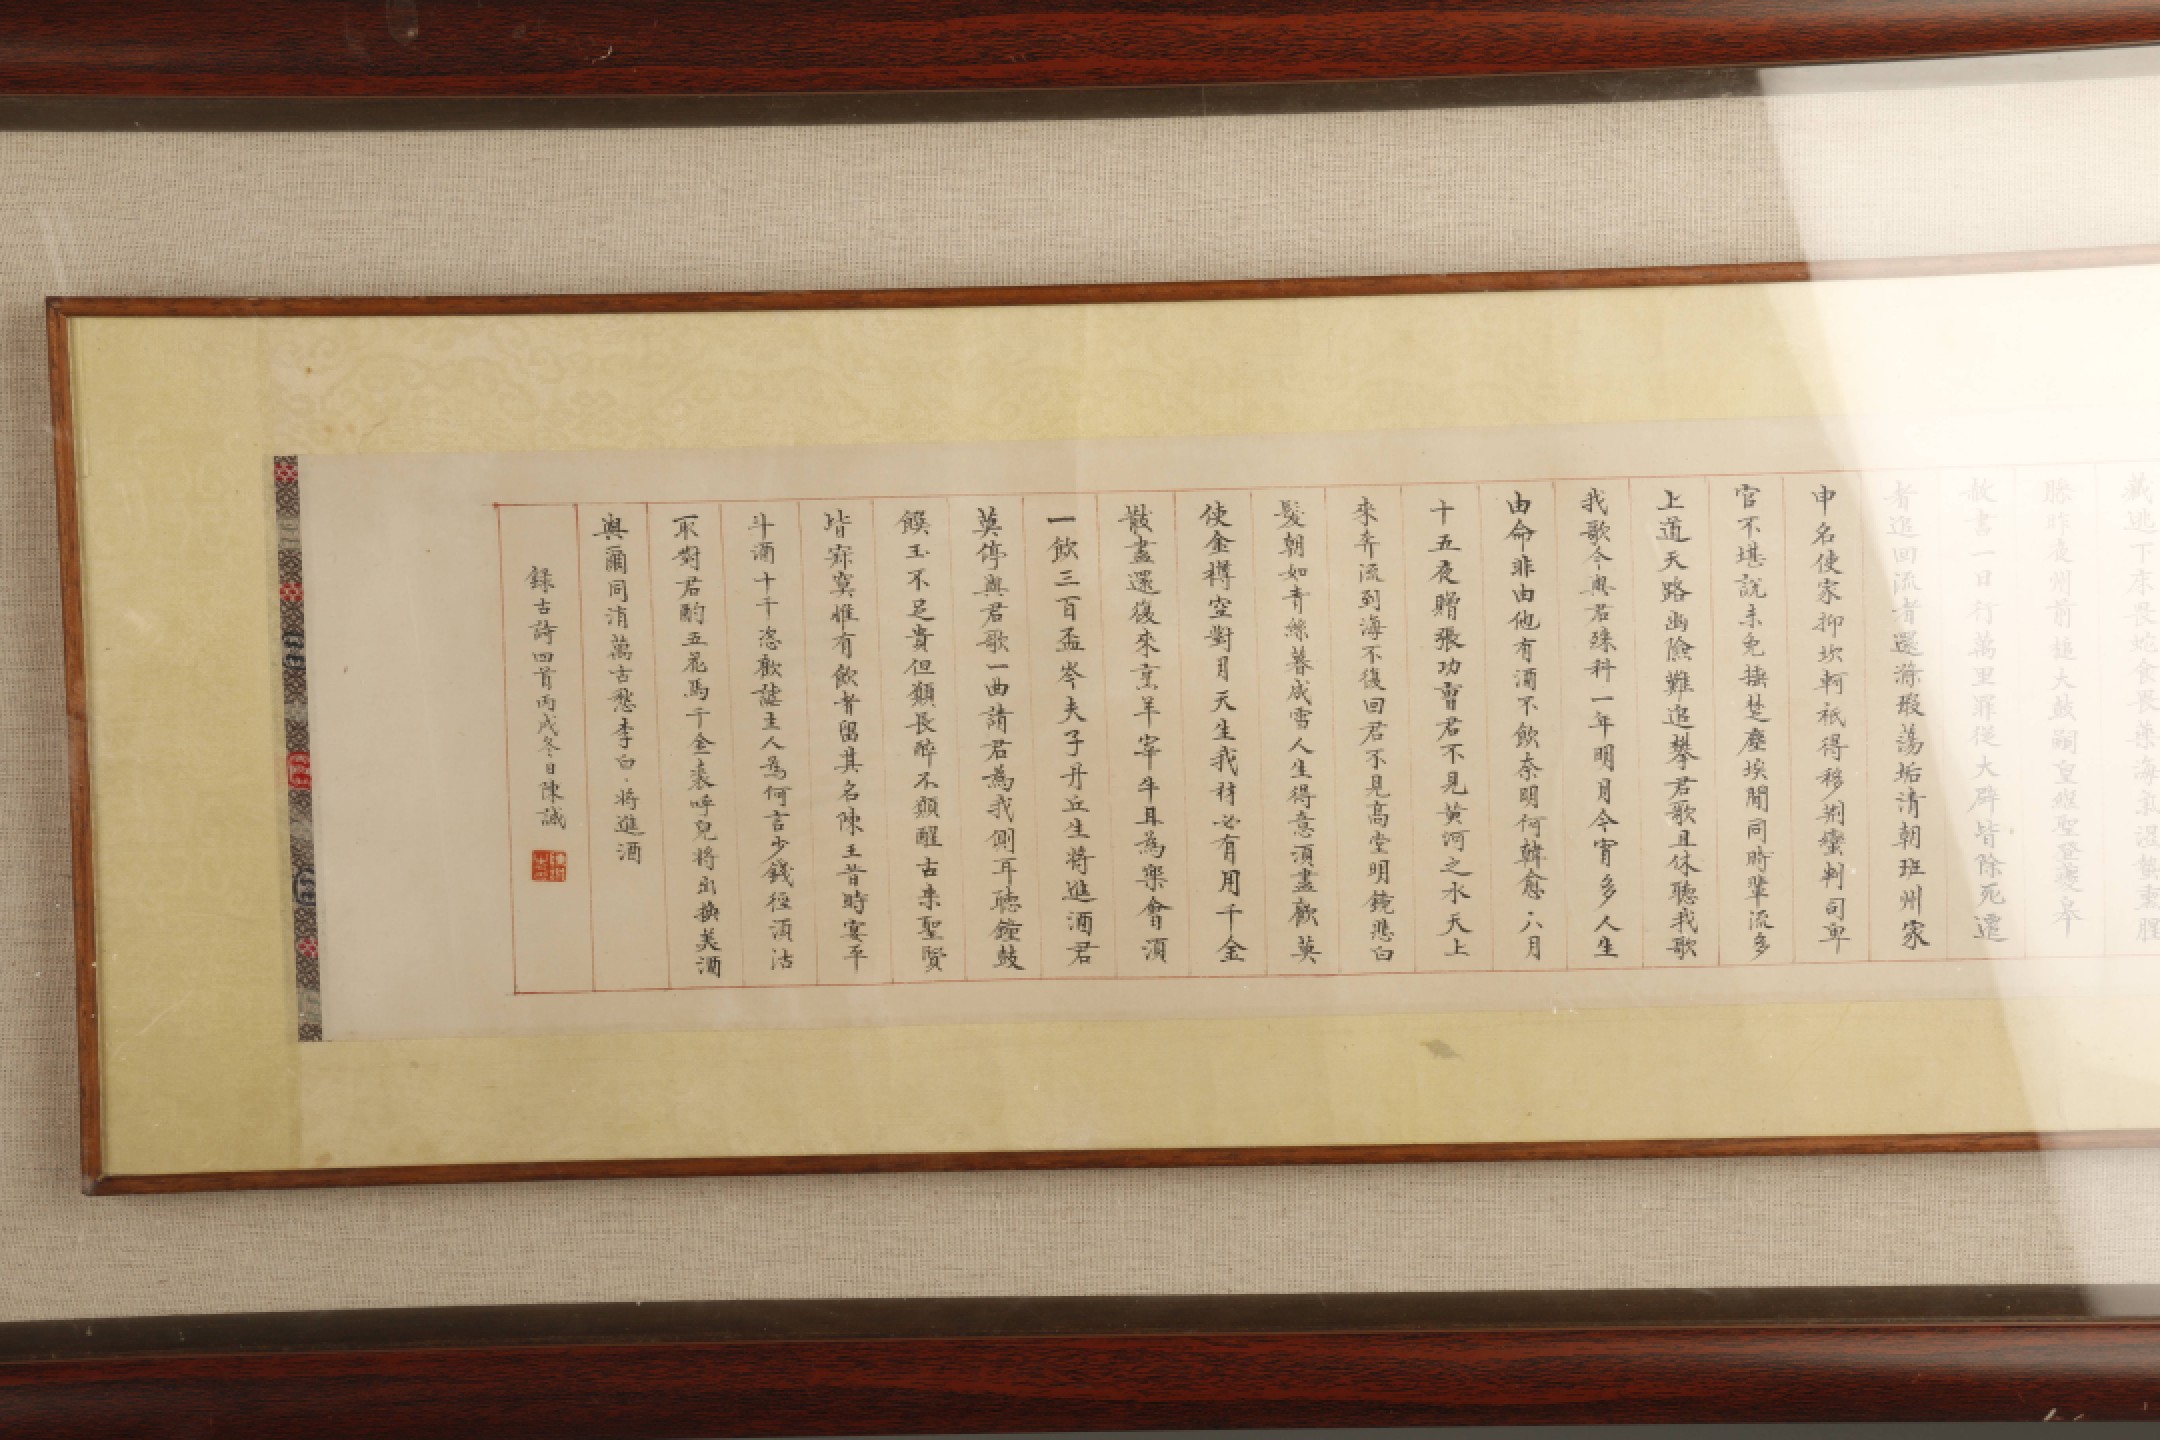 藏逃下床畏蛇食畏藥海氣濕蟄熏腥
臊昨夜州前搥大鼓嗣皇繼聖登夔皋
赦書一日行萬里罪從大辟皆除死遷
者追回流者還滌瑕蕩垢清朝班州家
申名使家抑坎軻祇得移荊蠻判司卑
官不堪說未免捶楚塵埃間同時輩流多
上道天路幽險難追攀君歌且休聽我歌
我歌今與君殊科一年明月今宵多人生
由命非由他有酒不飲奈明何韓愈八月
十五夜贈張功曹君不見黃河之水天上
來奔流到海不復回君不見高堂明鏡悲白
髮朝如青絲暮成雪人生得意須盡歡莫
使金樽空對月天生我材必有用千金
散盡還復來烹羊宰牛且為樂會須
一飲三百盃岑夫子丹丘生將進酒君
莫停與君歌一曲請君為我側耳聽鐘鼓
饌玉不足貴但願長醉不願醒古來聖賢
皆寂寞惟有飲者留其名陳王昔時宴平
斗酒十千恣歡謔主人為何言少錢徑須沽
取對君酌五花馬千金裘呼兒將出換美酒
與爾同消萬古愁李白·將進酒
錄古詩四首丙戌冬日陳誠